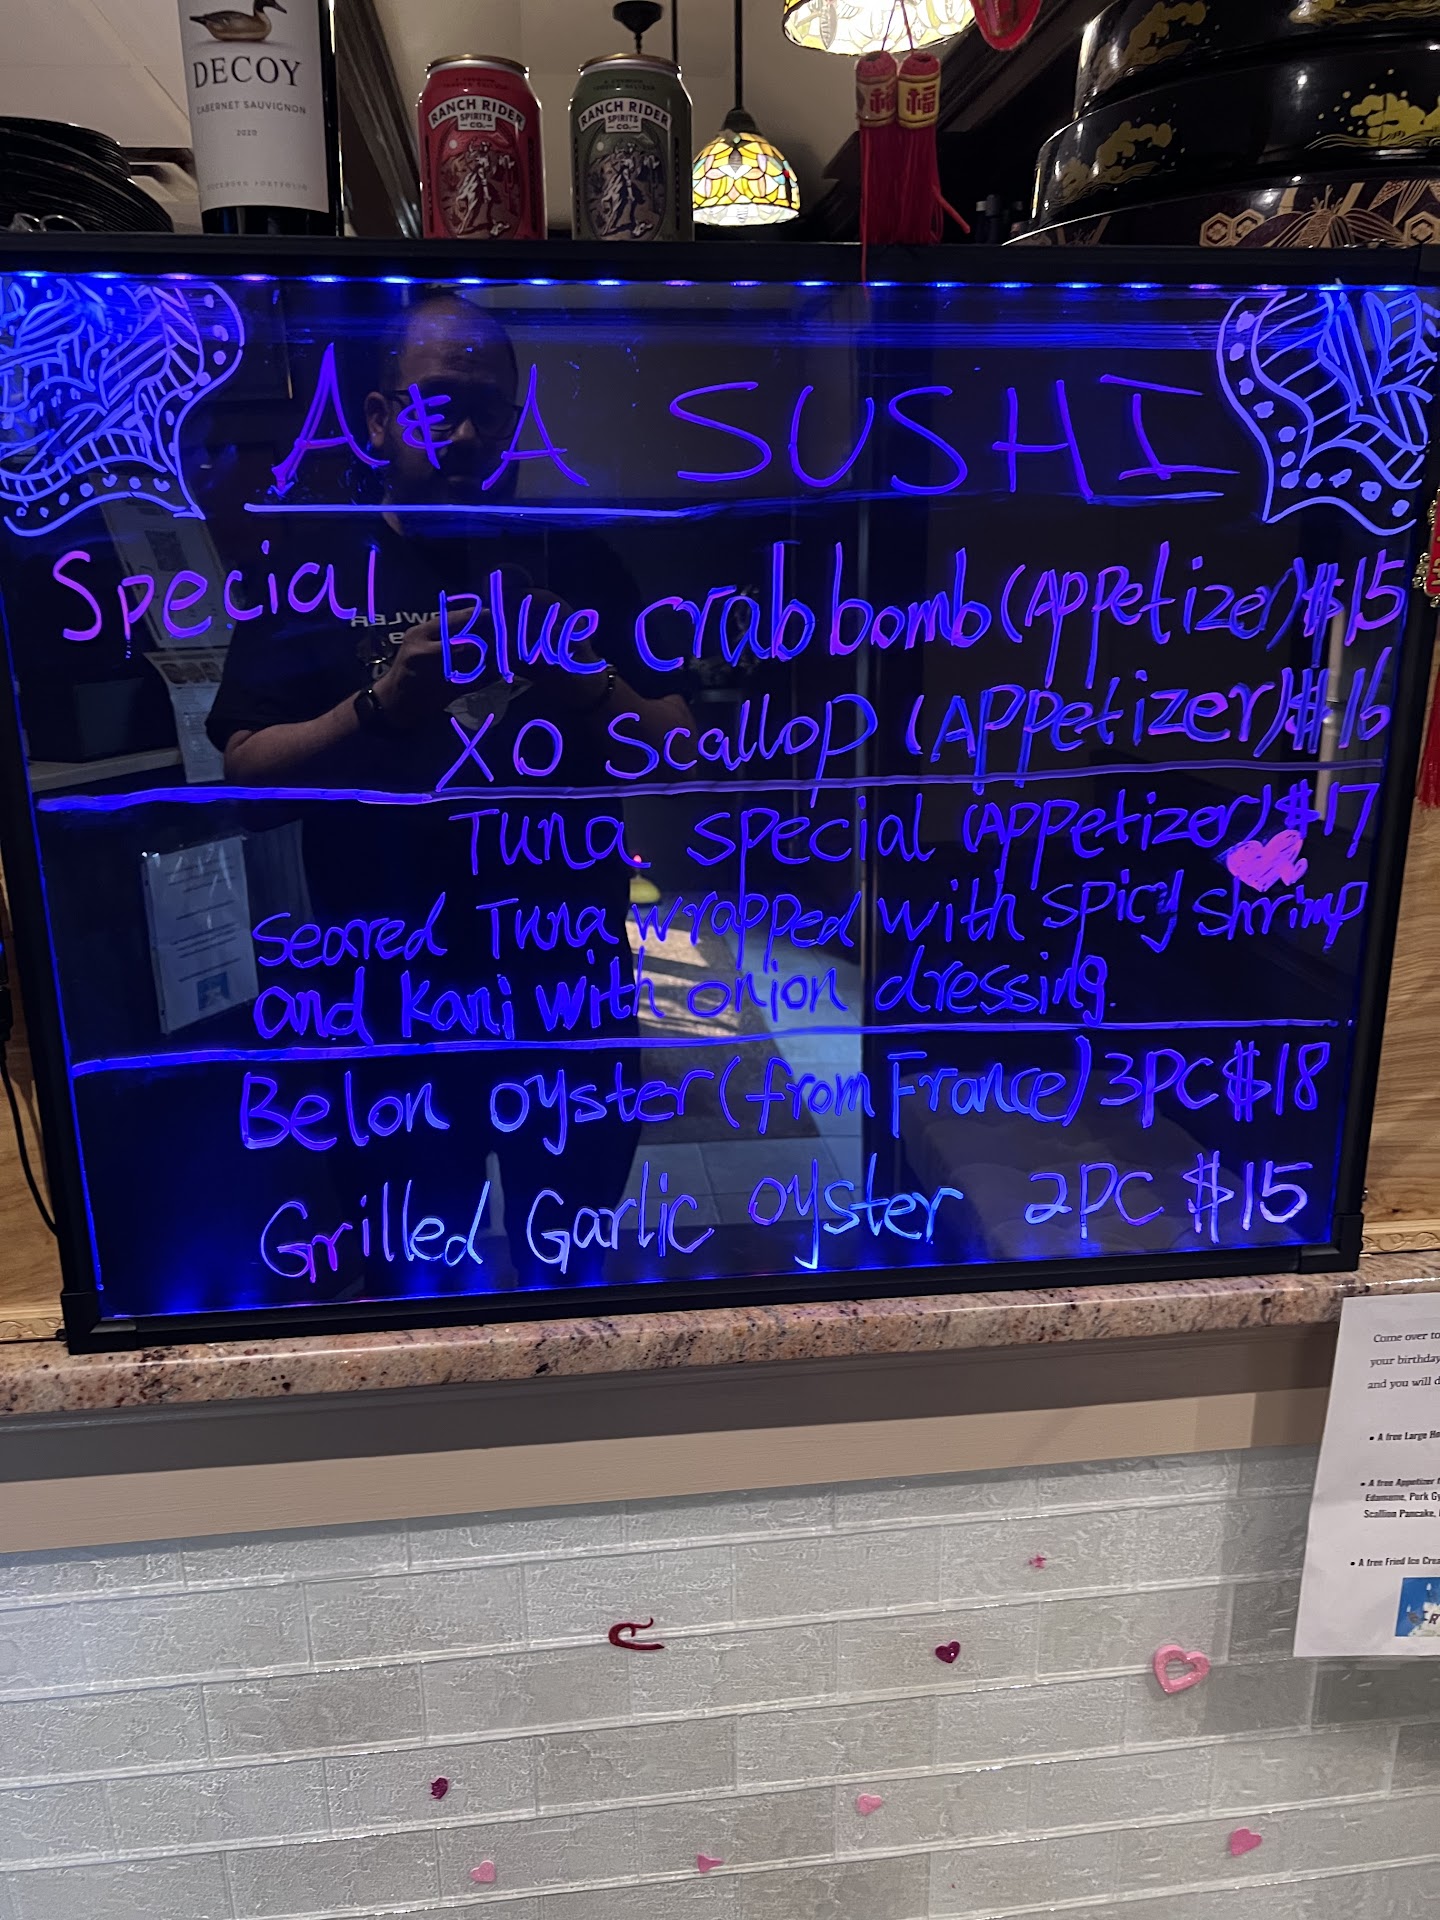 DECOY
CABERNET SAUVIGNON
2020
RANCH RIDER
SPIRITS
CO.
RANCH RIDER
SPIRITS
CO.
福
福
A & A SUSHI
Special
Blue crab bomb (Appetizer) $15
XO Scallop (Appetizer) $16
Tuna special (Appetizer) $17
Seared Tuna wrapped with spicy shrimp
and Kani with onion dressing.
Belon oyster (from France) 3PC $18
Grilled Garlic oyster 2PC $15
Come over to
your birthday
and you will d
• A free Large
• A free Appetizer
Edamame, Pork Gy
Scallion Pancake,
• A free Fried Ice Crea